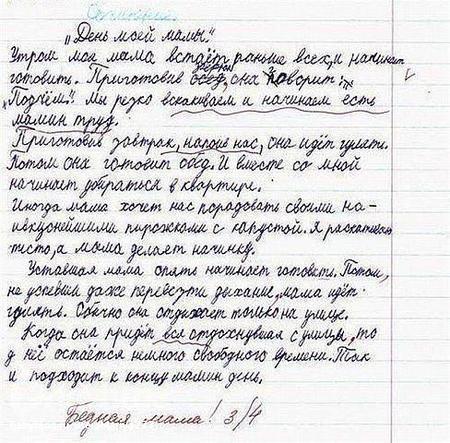 Сочинение.
"День моей мамы."
Утром моя мама встаёт раньше всех, и начинает
готовить. Приготовив обед, она говорит:
"Подъём!" Мы резко вскакиваем и начинаем есть
мамин труд.
Приготовив завтрак, напоив нас, она идёт гулять.
Потом она готовит обед. И вместе со мной
начинает убираться в квартире.
Иногда мама хочет нас порадовать своими на-
ивкуснейшими пирожками с капустой. Я раскатываю
тесто, а мама делает начинку.
Уставшая мама опять начинает готовить. Потом,
не успевши даже перевести дыхание, мама идёт
гулять. Обычно она отдыхает только на улице.
Когда она придёт вся отдохнувшая с улицы, то
у неё остаётся немного свободного времени. Так
и подходит к концу мамин день.
Бедная мама! 3/4